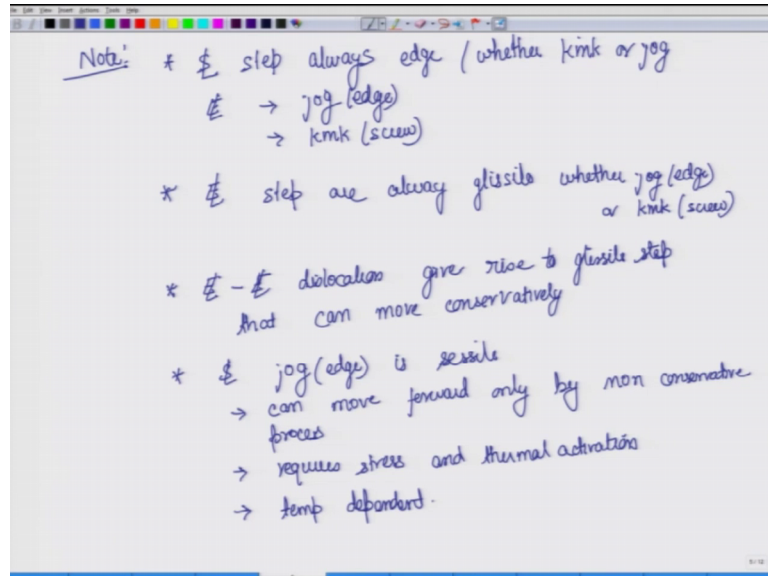 Note: * $ step always edge / whether kink or jog
E → jog (edge)
→ kink (screw)
* E step are alway glissile whether jog (edge)
or kink (screw)
* E - E dislocations give rise to glissile step
that can move conservatively
* $ jog (edge) is sessile
→ can move forward only by non conservative
process
→ requires stress and thermal activation
→ temp dependent.